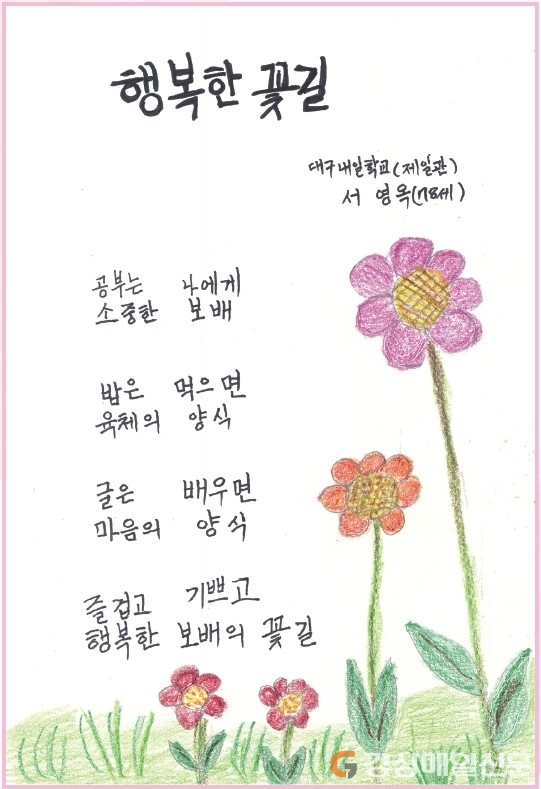 행복한 꽃길
대구내일학교(제일관)
서 영옥(78세)
공부는 나에게
소중한 보배
밥은 먹으면
육체의 양식
글은 배우면
마음의 양식
즐겁고 기쁘고
행복한 보배의 꽃길
경상매일신문